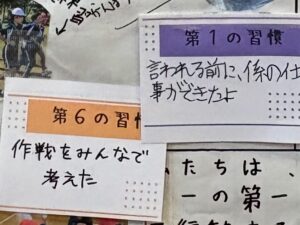 第1の習慣
言われる前に、係の仕
事ができたよ
第6の習
作戦をみんなで
考えた
たちは、
一の第一